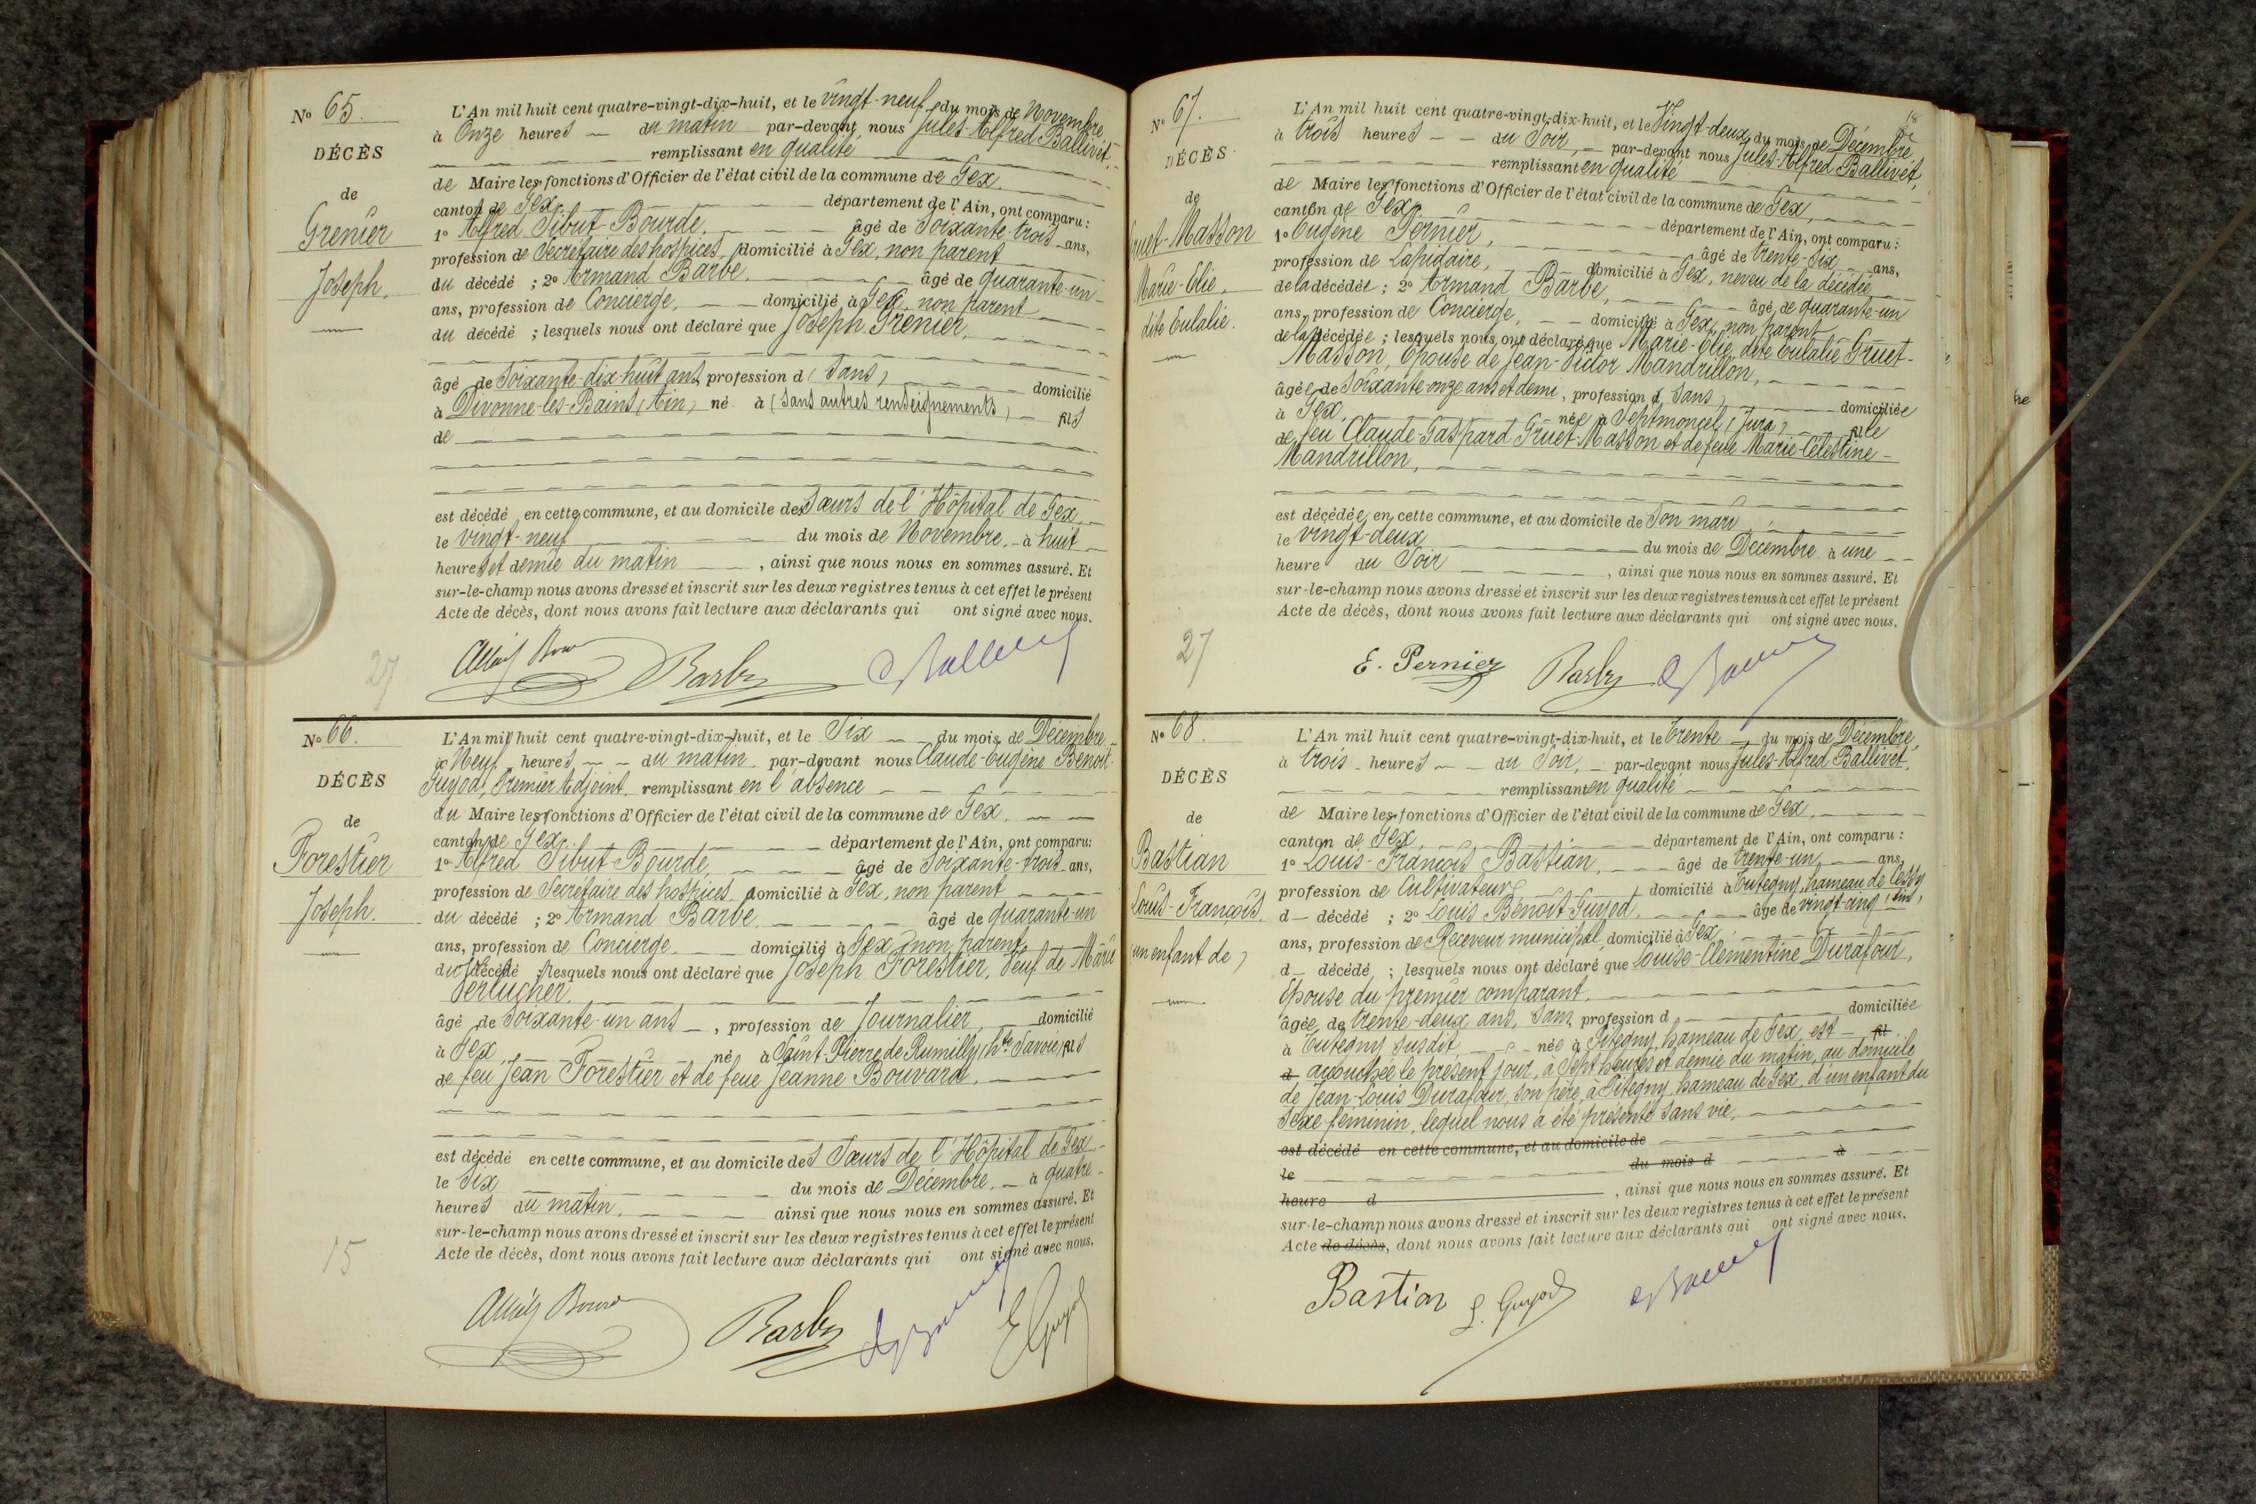 No 65.
DÉCÈS
de
Grenier
Joseph.
L'An mil huit cent quatre-vingt-dix-huit, et le vingt-neuf du mois de Novembre,
à Onze heures du matin par-devant nous Jules-Alfred Ballivet,
remplissant en qualité
de Maire les fonctions d'Officier de l'état civil de la commune de Gex.
canton de Gex. département de l'Ain, ont comparu :
1º Alfred Sibut-Bourde, âgé de Soixante-trois ans,
profession de Secrétaire des hospices, domicilié à Gex, non parent
du décédé ; 2º Armand Barbe, âgé de quarante-un
ans, profession de Concierge, domicilié à Gex, non parent
du décédé ; lesquels nous ont déclaré que Joseph Grenier,
âgé de Soixante-dix-huit ans, profession d (Sans) domicilié
à Divonne-les-Bains (Ain) né à (Sans autres renseignements) fils
de
est décédé en cette commune, et au domicile des Sœurs de l'Hôpital de Gex
le vingt-neuf du mois de Novembre à huit
heures et demie du matin, ainsi que nous nous en sommes assuré. Et
sur-le-champ nous avons dressé et inscrit sur les deux registres tenus à cet effet le présent
Acte de décès, dont nous avons fait lecture aux déclarants qui ont signé avec nous.
Barbe
27
No 66.
DÉCÈS
de
Forestier
Joseph.
L'An mil huit cent quatre-vingt-dix-huit, et le Six du mois de Décembre
à Neuf heures du matin par-devant nous Claude-Eugène Benoit-
Guyod, Premier Adjoint, remplissant en l'absence
du Maire les fonctions d'Officier de l'état civil de la commune de Gex,
canton de Gex. département de l'Ain, ont comparu:
1º Alfred Sibut-Bourde, âgé de Soixante-trois ans,
profession de Secrétaire des hospices, domicilié à Gex, non parent
du décédé ; 2º Armand Barbe âgé de quarante-un
ans, profession de Concierge domicilié à Gex, non parent
du décédé ; lesquels nous ont déclaré que Joseph Forestier, Veuf de Marie
Verlucher.
âgé de Soixante-un ans, profession de Journalier, domicilié
à Gex né à Saint-Pierre de Rumilly (hte Savoie) fils
de feu Jean Forestier et de feue Jeanne Bouvard.
est décédé en cette commune, et au domicile des Sœurs de l'Hôpital de Gex
le Six du mois de Décembre à quatre
heures du matin. ainsi que nous nous en sommes assuré. Et
sur-le-champ nous avons dressé et inscrit sur les deux registres tenus à cet effet le présent
Acte de décès, dont nous avons fait lecture aux déclarants qui ont signé avec nous.
Barbe
15
No 67.
DÉCÈS
de
Gruet-Masson
Marie-Elie,
dite Eulalie.
L'An mil huit cent quatre-vingt-dix-huit, et le Vingt-deux du mois de Décembre
à trois heures du Soir, par-devant nous Jules-Alfred Ballivet,
remplissant en qualité
de Maire les fonctions d'Officier de l'état civil de la commune de Gex,
canton de Gex, département de l'Ain, ont comparu :
1º Eugène Pernier, âgé de trente-six ans,
profession de Lapidaire, domicilié à Gex, neveu de la décédée
de la décédée ; 2º Armand Barbe, âgé de quarante-un
ans, profession de Concierge, domicilié à Gex, non parent
de la décédée ; lesquels nous ont déclaré que Marie-Elie, dite Eulalie Gruet-
Masson, Epouse de Jean-Victor Mandrillon,
âgée de Soixante-onze ans et demi, profession d (Sans) domiciliée
à Gex, née à Septmoncel (Jura) fille
de feu Claude-Gaspard Gruet-Masson et de feue Marie-Célestine
Mandrillon,
est décédée en cette commune, et au domicile de Son mari
le vingt-deux du mois de Décembre à une
heure du Soir, ainsi que nous nous en sommes assuré. Et
sur-le-champ nous avons dressé et inscrit sur les deux registres tenus à cet effet le présent
Acte de décès, dont nous avons fait lecture aux déclarants qui ont signé avec nous.
E. Pernier Barbe
27
No 68.
DÉCÈS
de
Bastian
Louis-François.
(un enfant de)
L'An mil huit cent quatre-vingt-dix-huit, et le trente du mois de Décembre,
à trois heures du Soir, par-devant nous Jules-Alfred Ballivet,
remplissant en qualité
de Maire les fonctions d'Officier de l'état civil de la commune de Gex,
canton de Gex, département de l'Ain, ont comparu :
1º Louis-François Bastian, âgé de trente-un ans,
profession de Cultivateur, domicilié à Tutegny, hameau de Cessy
d décédé ; 2º Louis Benoit-Guyod, âgé de vingt-cinq
ans, profession de Receveur municipal domicilié à Gex
d décédé ; lesquels nous ont déclaré que Louise-Clémentine Durafour,
Epouse du premier comparant,
âgée de trente-deux ans, Sans profession d domiciliée
à Tutegny susdit, née à Pitegny, hameau de Gex, est fil
d accouchée le présent jour, à Sept heures et demie du matin, au domicile
de Jean-Louis Durafour, son père, à Pitegny, hameau de Gex, d'un enfant du
Sexe féminin, lequel nous a été présenté sans vie.
est décédé en cette commune, et au domicile de
le du mois d à
heure d , ainsi que nous nous en sommes assuré. Et
sur-le-champ nous avons dressé et inscrit sur les deux registres tenus à cet effet le présent
Acte de décès, dont nous avons fait lecture aux déclarants qui ont signé avec nous.
Bastian L. Guyod